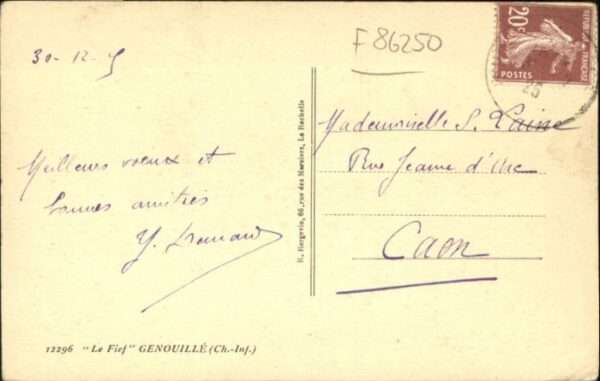 F 86250
30-12-
20c
REPUBLIQUE FRANÇAISE
POSTES
25
Meilleurs voeux et
bonnes amitiés
Y.
Mademoiselle S. Laine
Rue Jeanne d'Arc
Caen
H. Bergevin, 66, rue des Merciers, La Rochelle
12296 "Le Fief" GENOUILLÉ (Ch.-Inf.)